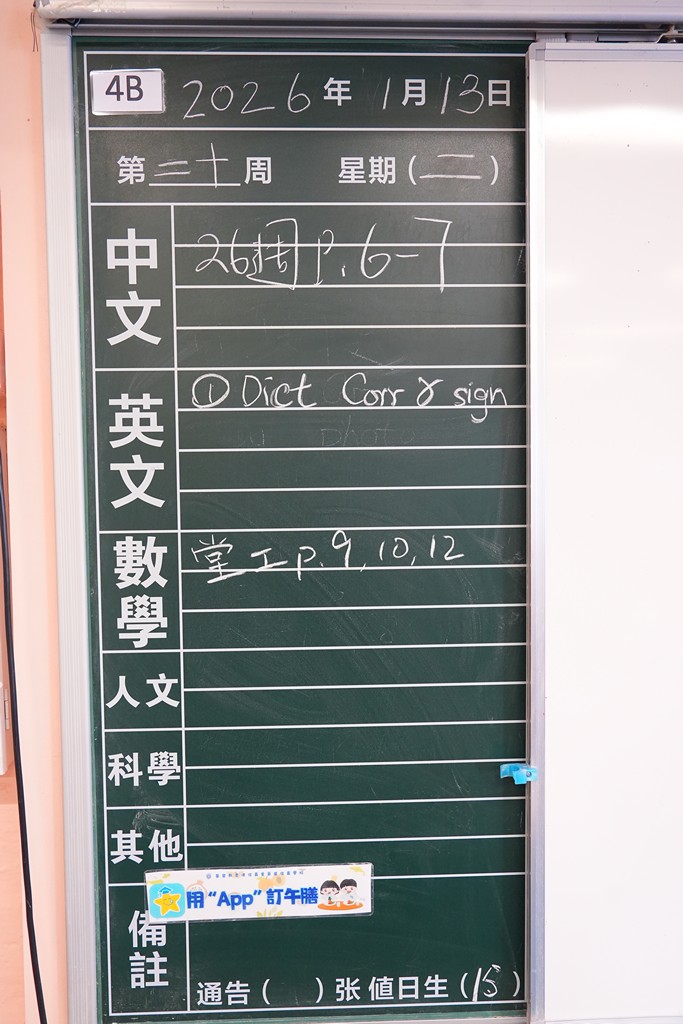 4B 2026年1月13日
第二十周 星期(二)
中文
26週 p.6-7
英文
① Dict Corr & sign
photo
數學
堂工 p.9, 10, 12
人文
科學
其他
用“App”訂午膳
備註
通告( )张 值日生(15)